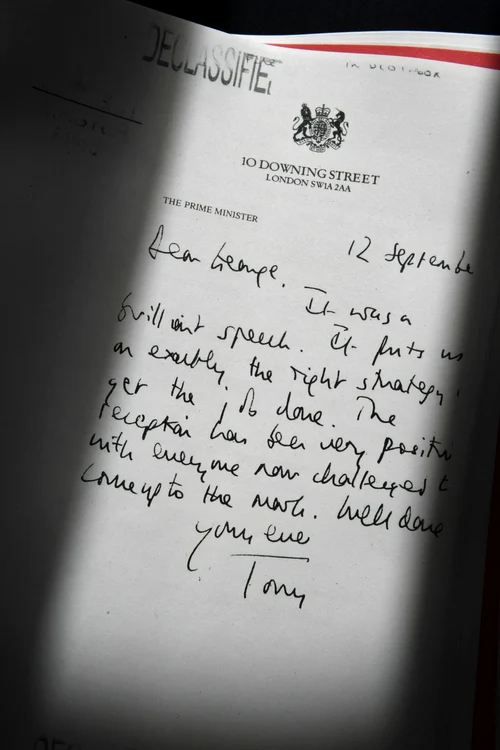 DECLASSIFIED
10 DOWNING STREET
LONDON SW1A 2AA
THE PRIME MINISTER
12 Septembe
Dear George,
It was a
brilliant speech. It puts us
on exactly the right strategy
get the job done. The
reception has been very positiv
with everyone now challenged t
come up to the mark. Well done
yours ever
Tony